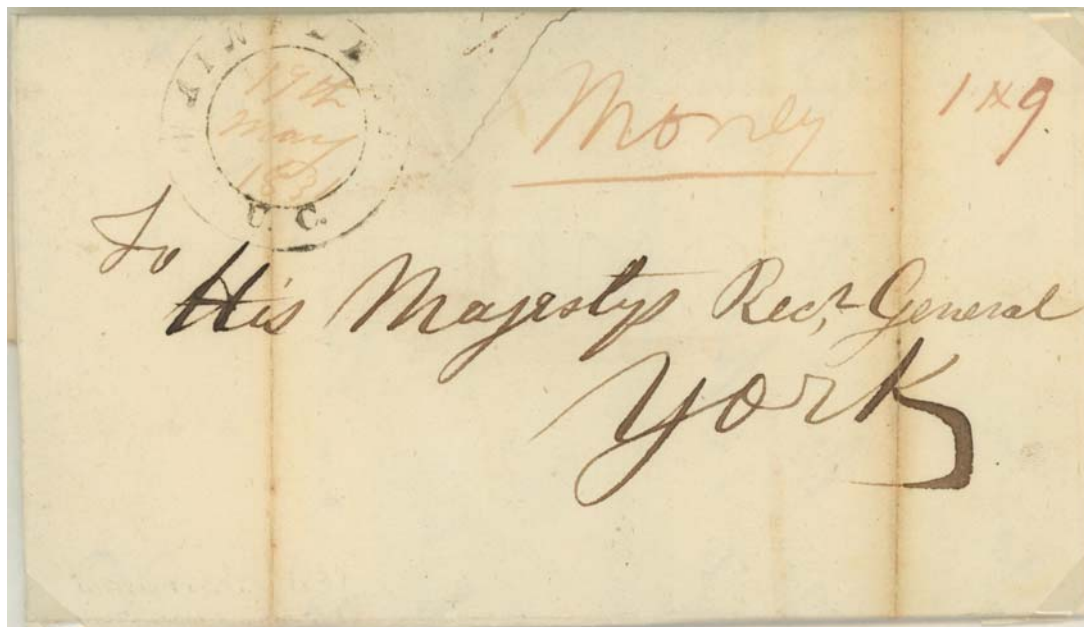 19th
May
183
U. C.
Money
1 N 9
To
His Majestys Recr General
York